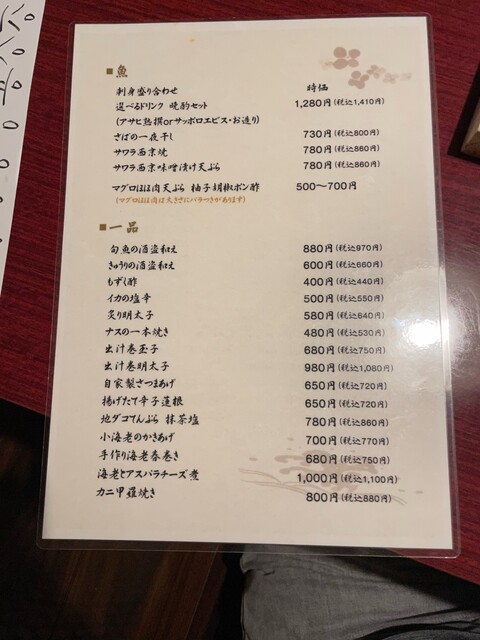 ■魚
刺身盛り合わせ 時価
選べるドリンク 晩酌セット 1,280円(税込1,410円)
(アサヒ熟撰orサッポロエビス・お造り)
さばの一夜干し 730円(税込800円)
サワラ西京焼 780円(税込860円)
サワラ西京味噌漬け天ぷら 780円(税込860円)
マグロほほ肉天ぷら 柚子胡椒ポン酢 500〜700円
(マグロほほ肉は大きさにバラつきがあります)
■一品
旬魚の酒盗和え 880円(税込970円)
きゅうりの酒盗和え 600円(税込660円)
もずく酢 400円(税込440円)
イカの塩辛 500円(税込550円)
炙り明太子 580円(税込640円)
ナスの一本焼き 480円(税込530円)
出汁巻玉子 680円(税込750円)
出汁巻明太子 980円(税込1,080円)
自家製さつまあげ 650円(税込720円)
揚げたて辛子蓮根 650円(税込720円)
地ダコてんぷら 抹茶塩 780円(税込860円)
小海老のかきあげ 700円(税込770円)
手作り海老春巻き 680円(税込750円)
海老とアスパラチーズ煮 1,000円(税込1,100円)
カニ甲羅焼き 800円(税込880円)